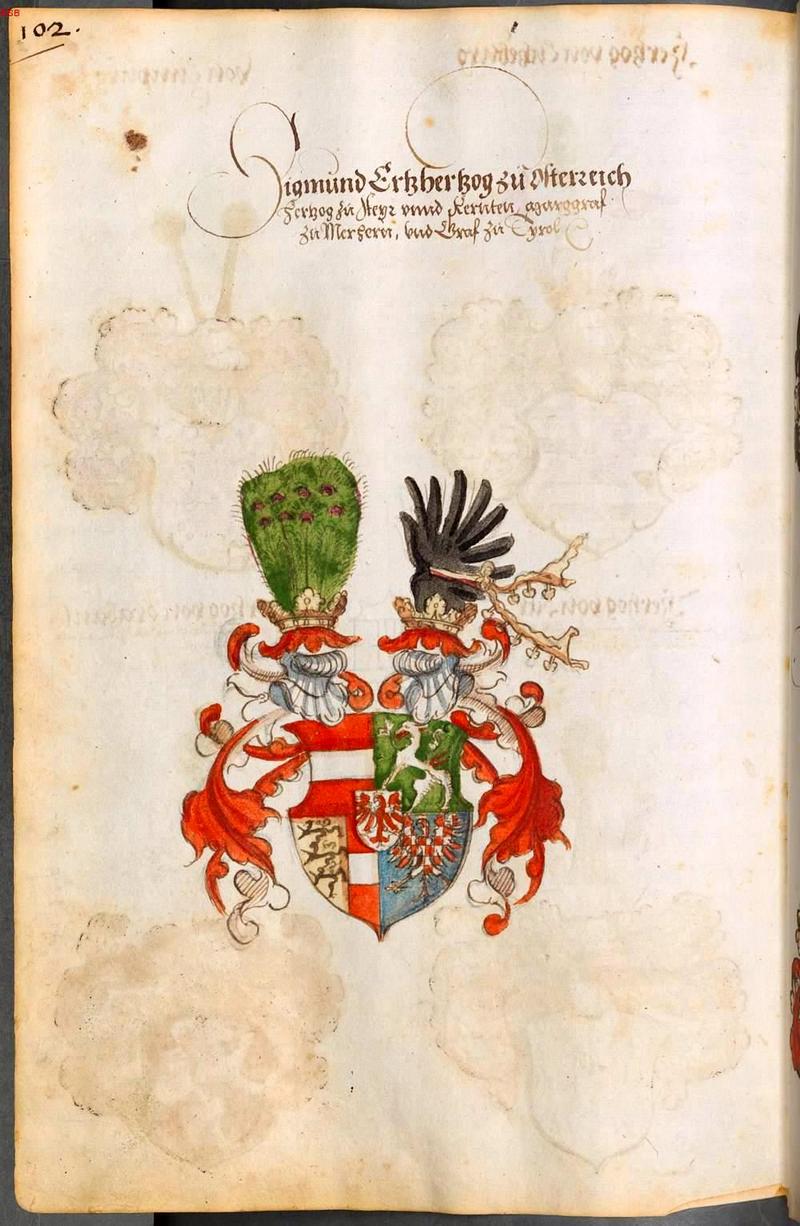 BSB
102.
Sigmund Ertzhertzog zu Osterreich
Hertzog zu Steyr vnnd Kernten, Marggraf
zu Merhern, vnd Graf zu Tyrol